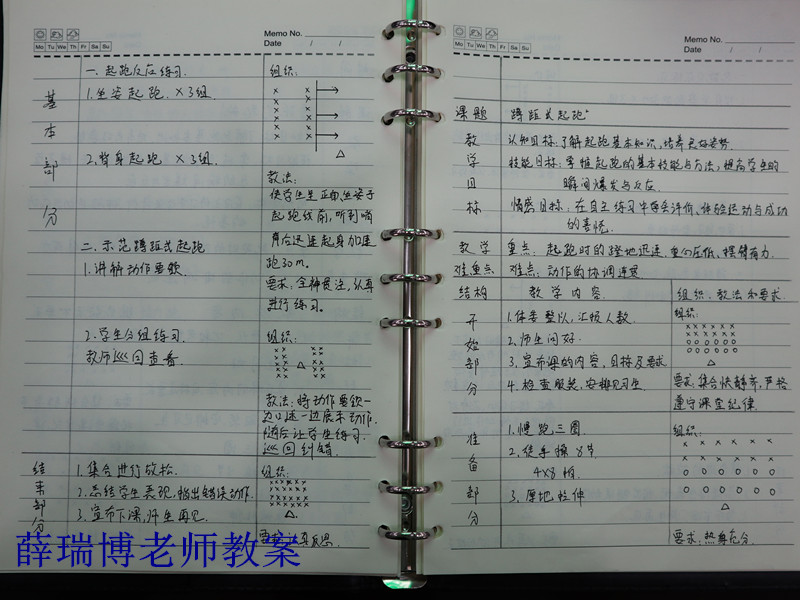 Memo No.
Date / /
Mo Tu We Th Fr Sa Su
基本部分
一. 起跑反应练习.
1. 坐姿起跑. × 3组.
2. 背身起跑 × 3组.
二. 示范蹲距式起跑
1. 讲解动作要领
2. 学生分组练习.
教师巡回查看.
组织:
教法:
使学生呈正面坐姿于
起跑线前,听到哨
声后迅速起身加速
跑30m。
要求:全神贯注,认真
进行练习。
组织:
教法:将动作要领一
边口述一边展示动作.
随后让学生练习.
巡回纠错.
结束部分
1. 集合进行放松.
2. 总结学生表现,指出错误动作.
3. 宣布下课,师生再见.
组织:
要求:认真反思.
薛瑞博老师教案
Memo No.
Date / /
Mo Tu We Th Fr Sa Su
课题 蹲距式起跑
教学目标
认知目标:了解起跑基本知识,培养良好姿势.
技能目标:掌握起跑的基本技能与方法,提高学生的
瞬间爆发与反应.
情感目标:在自主练习中学会评价,体验运动与成功
的喜悦.
教学重难点
重点:起跑时的蹬地迅速,重心压低,摆臂有力.
难点:动作的协调连贯
结构 教学内容 组织、教法和要求.
开始部分
1. 体委整队,汇报人数.
2. 师生问好.
3. 宣布课的内容,目标及要求
4. 检查服装,安排见习生
组织:
要求:集合快静齐,严格
遵守课堂纪律.
准备部分
1. 慢跑三圈.
2. 徒手操8节
4×8拍.
3. 原地拉伸
组织:
要求:热身充分.